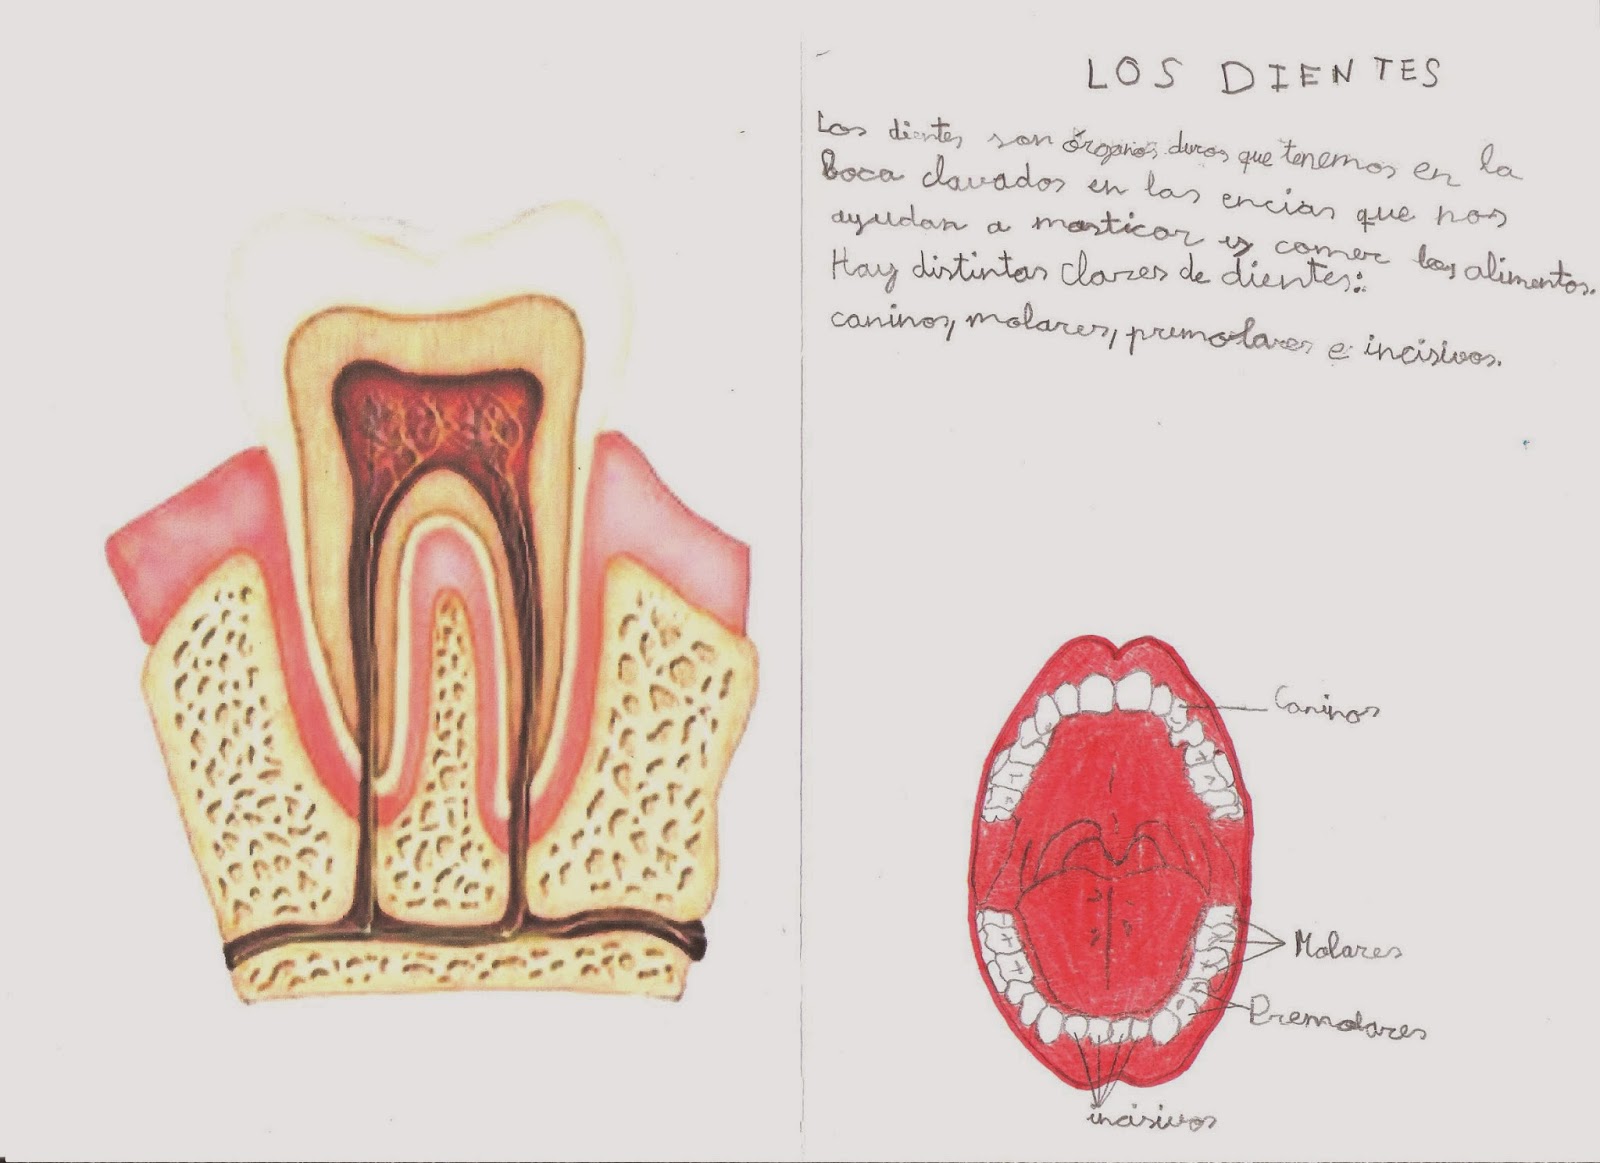 LOS DIENTES
Los dientes son órganos duros que tenemos en la
boca clavados en las encias que nos
ayudan a masticar y comer los alimentos.
Hay distintas clases de dientes:
caninos, molares, premolares e incisivos.
Caninos
Molares
Premolares
incisivos